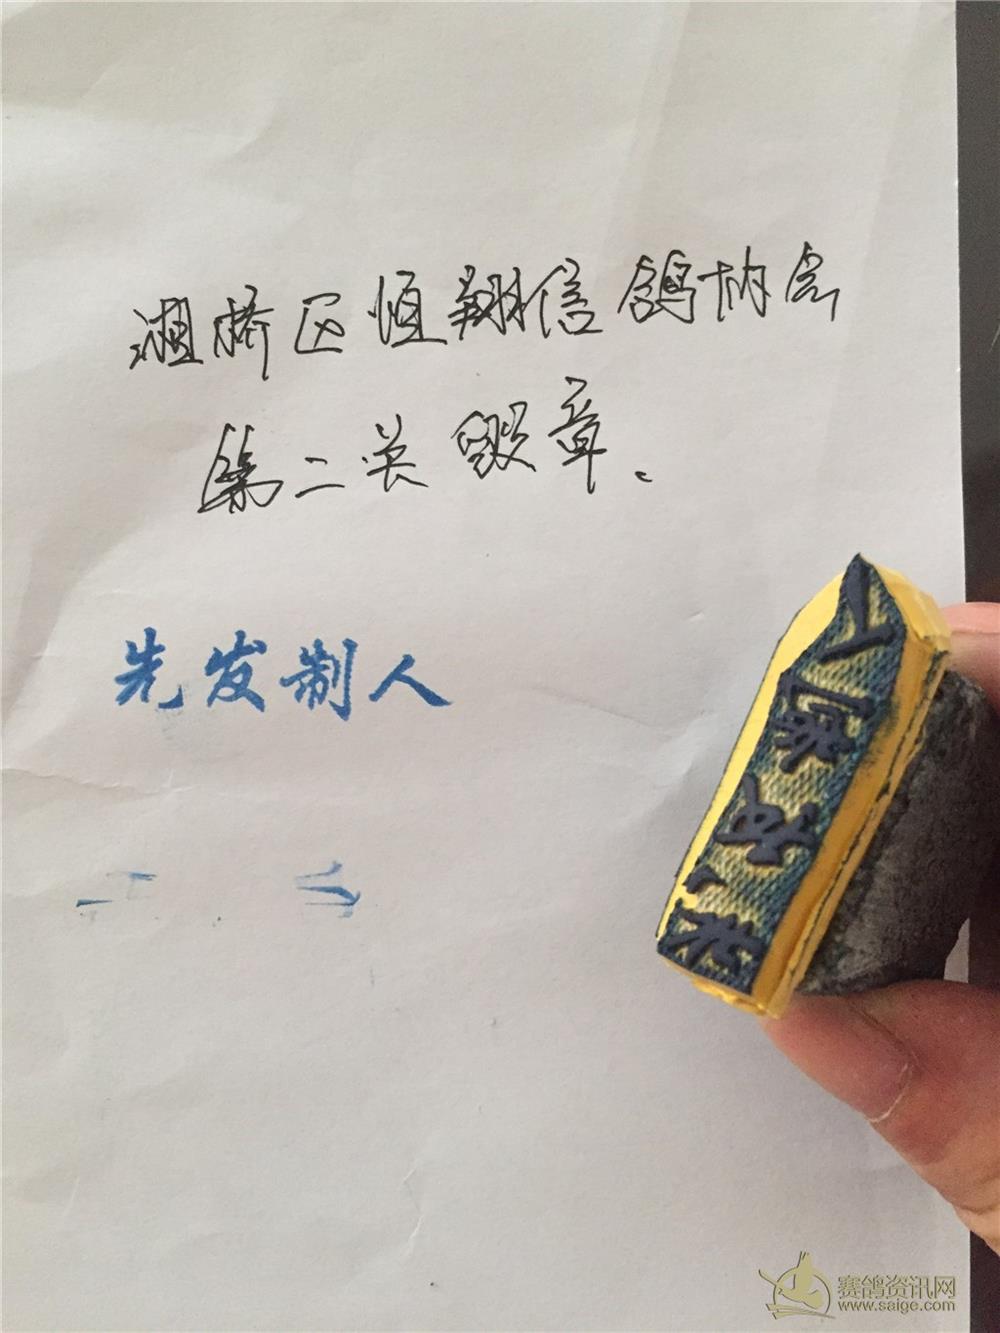 湘桥区恒翔信鸽协会
第二关毁章.
先发制人
赛鸽资讯网
www.saige.com